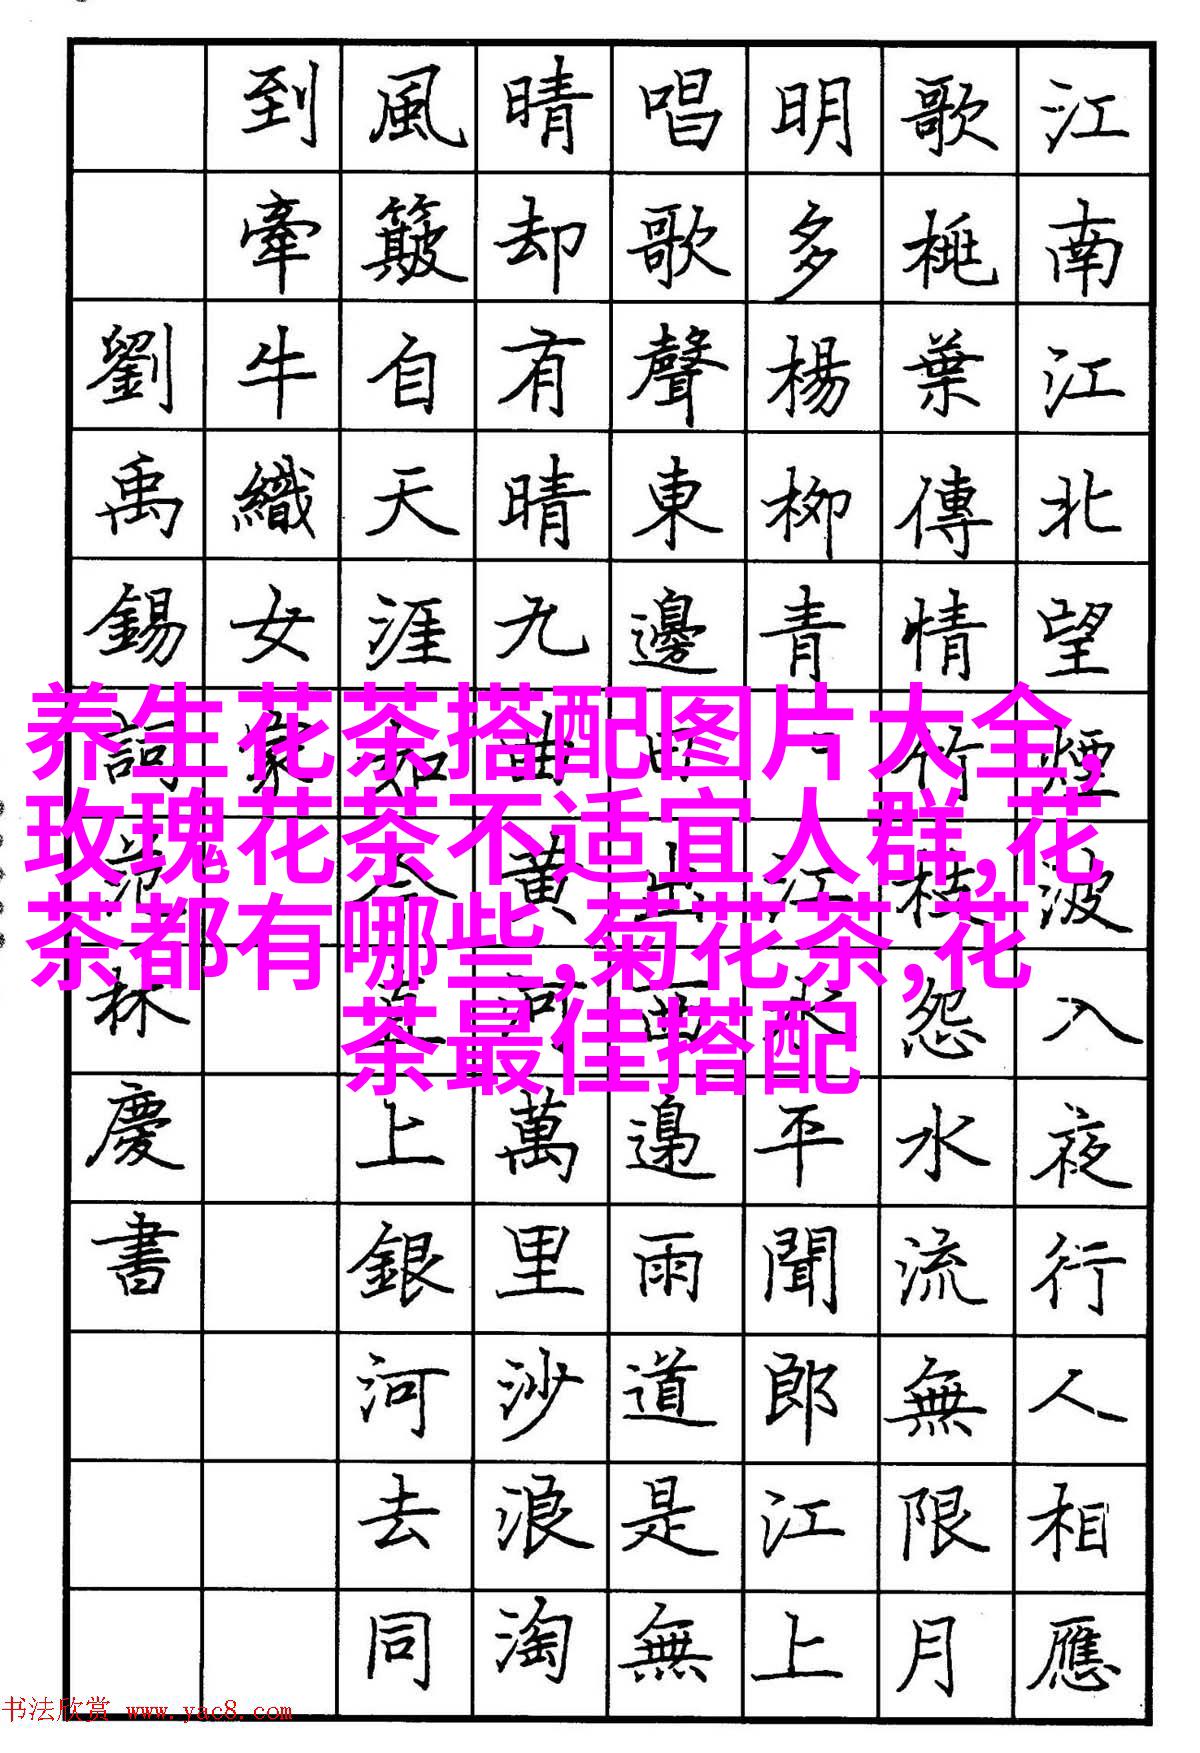 江南江北望煙波入夜行人相應
歌桃葉傳情竹枝怨水流無限月
明多楊柳青江水平聞郎江上
唱歌聲東邊日出西邊雨道是無
晴却有晴九曲黃河萬里沙浪淘
風簸自天涯如今直上銀河去同
到牽牛織女家
劉禹錫詞范林慶書
养生花茶搭配图片大全,
玫瑰花茶不适宜人群,花
茶都有哪些,菊花茶,花
茶最佳搭配
书法欣赏 www.yac8.com